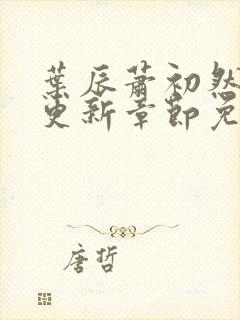 叶辰萧初然
更新章节免
唐哲